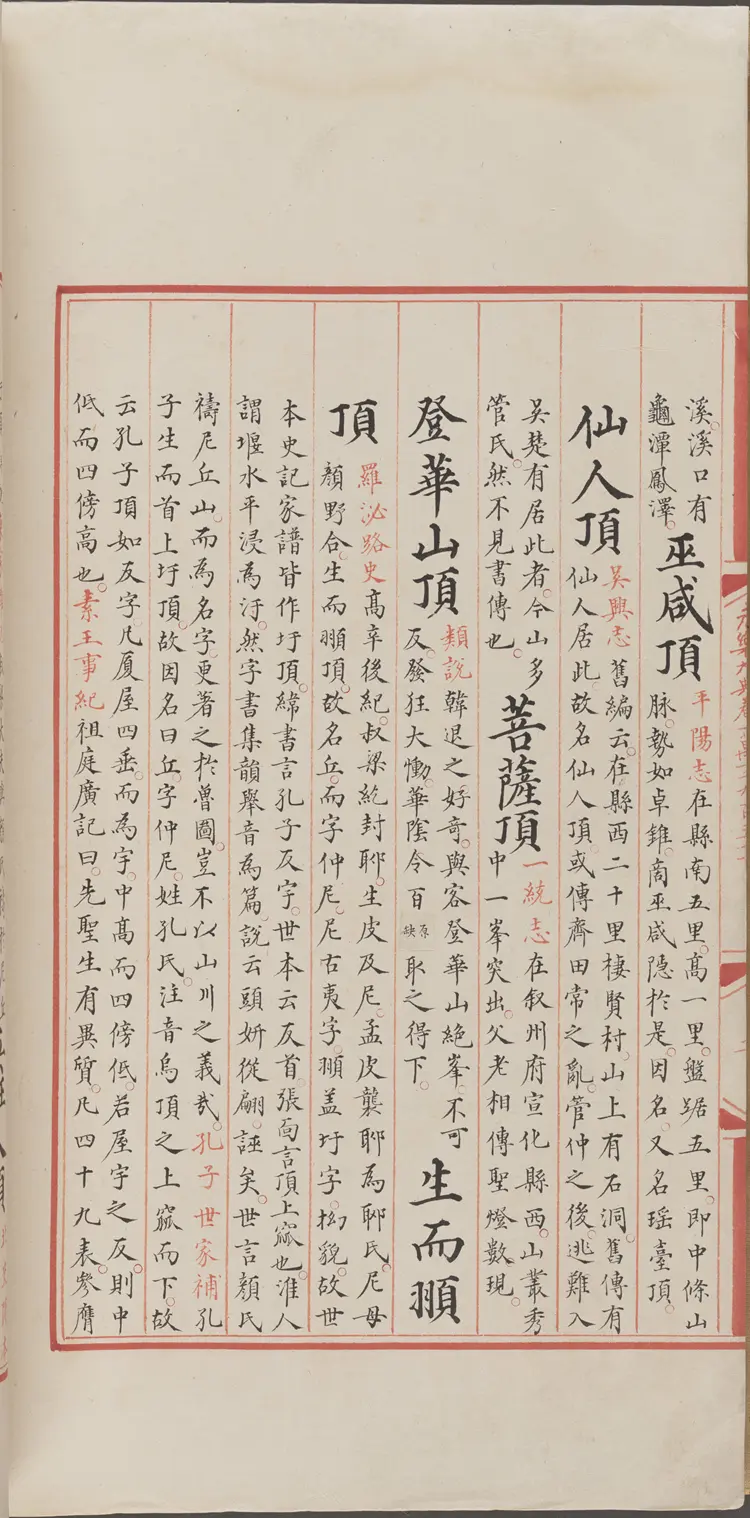 溪。溪口有
龜潭鳳澤。
巫咸頂
平陽志在縣南五里。高一里。盤踞五里。即中條山
脉。勢如卓錐。商巫咸隱於是。因名。又名瑤臺頂。
仙人頂
吳興志舊編云。在縣西二十里棲賢村。山上有石洞。舊傳有
仙人居此。故名仙人頂。或傳齊田常之亂。管仲之後。逃難入
吳楚有居此者。今山多
管氏。然不見書傳也。
菩薩頂
一統志在叙州府宣化縣西。山叢秀
中一峯突出。父老相傳聖燈數現。
登華山頂
類說韓退之好奇。與客登華山絶峯。不可
反。發狂大慟。華陰令百原缺取之得下。
生而頨
頂
羅泌路史高辛後紀。叔梁紇封郰。生皮及尼。孟皮襲郰為郰氏。尼母
顏野合。生而頨頂。故名丘。而字仲尼。尼古夷字。頨盖圩字。貌。故世
本史記家譜皆作圩頂。緯書言孔子反宇。世本云反首。張面言頂上窳也。淮人
謂堰水平浸為汙。然字書集韻舉音為篇。說云頭妍從翩。誣矣。世言顏氏
禱尼丘山。而為名字。更著之於魯圖。豈不以山川之義哉。孔子世家補孔
子生而首上圩頂。故因名曰丘。字仲尼。姓孔氏。注音烏頂之上窳而下。故
云孔子頂如反宇。凡厦屋四垂。而為宇。中高而四傍低。若屋宇之反。則中
低而四傍高也。素王事紀祖庭廣記曰。先聖生有異質。凡四十九表。參膺